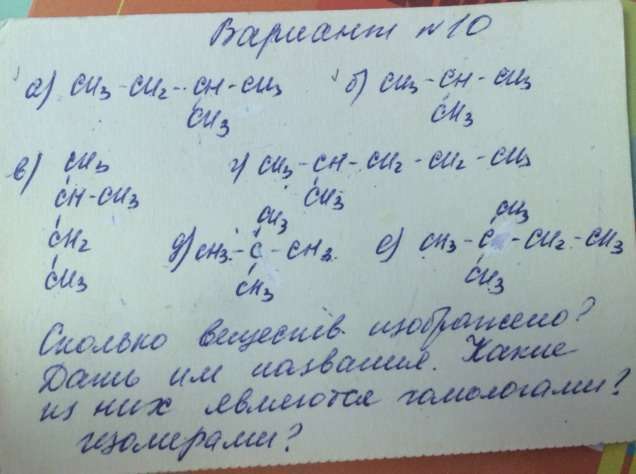 Вариант №10
а) CH3 - CH2 - CH - CH3 б) CH3 - CH - CH3
CH3 CH3
в) CH3 г) CH3 - CH - CH2 - CH2 - CH3
CH - CH3 CH3
CH3 CH3
CH2 д) CH3 - C - CH3 е) CH3 - C - CH2 - CH3
CH3 CH3 CH3
Сколько веществ изображено?
Дать им названия. Какие
из них являются гомологами?
изомерами?